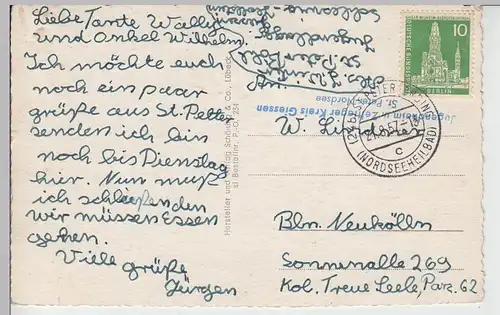 Liebe Tante Wally
und Onkel Wilhelm.
Ich möchte euch
noch ein paar
grüße aus St. Petter
senden ich bin
noch bis Dienstag
hier. Nun muß
ich schließen
wir müssen Essen
gehen.
Viele grüße
Jürgen
Jugendlager
Schleswig-Holstein
Hersteller und Verlag Schöning & Co., Lübeck
10
DEUTSCHE BUNDESPOST
BERLIN
ST. PETER
(NORDSEEHEILBAD)
c
Jugendheim u. Zeltlager Kreis Giessen
St. Peter Nordsee
An:
W. Lindner
Bln. Neukölln
Sonnenalle 269
Kol. Treue Seele, Parz. 62